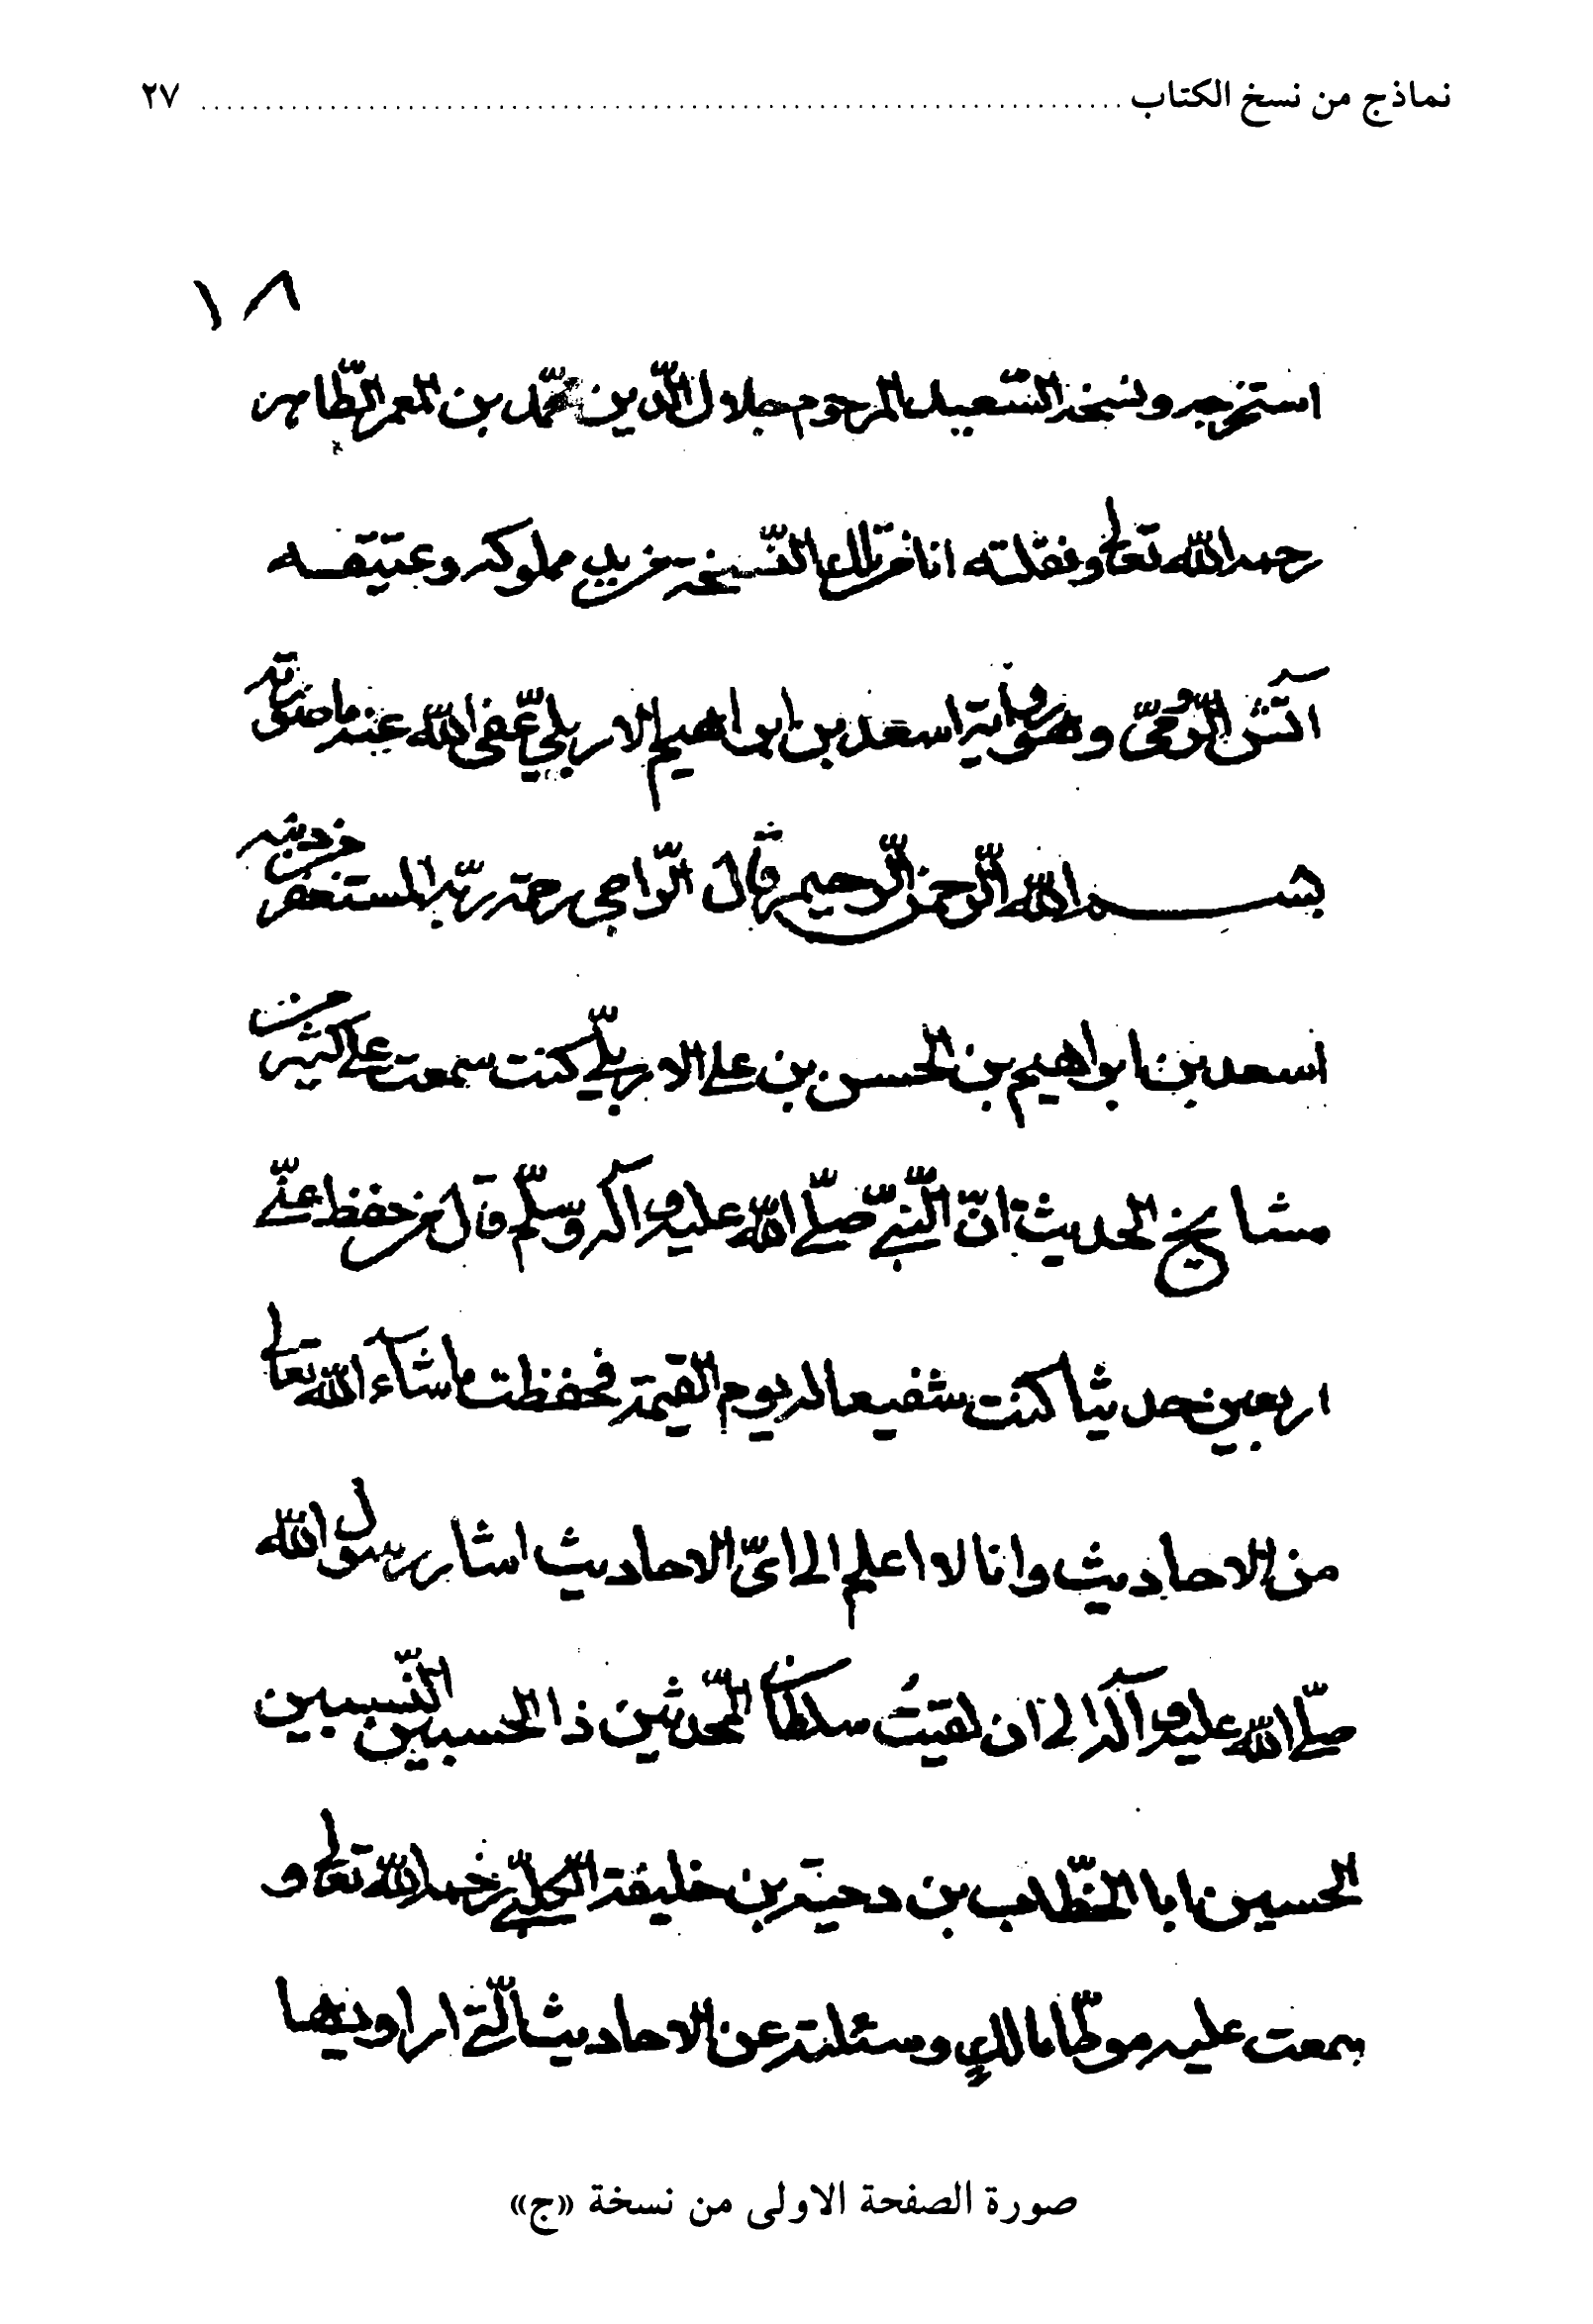 نماذج من نسخ الكتاب ........ ٢٧
١٨
استخرجه ونسخه السّعيد المرحوم جلال الدّين محمّد بن المعمر الطّاهر
رحمه الله تعالى ونقلته انا من تلك النّسيخة من يد مملوكه وعتيقه
آتش الرّوميّ وهو رواية اسعد بن ابراهيم الاربليّ عفى الله عنه
بسم الله الرّحمن الرّحيم قال الرّاجي رحمة ربّه المستغفر من ذنبه
اسعد بن ابراهيم بن الحسن بن علي الاربليّ كنت سمعت على كثير من
مشايخ الحديث انّ النّبيّ صلّى الله عليه وآله وسلّم قال من حفظ عنّي
اربعين حديثا كنت شفيعا له يوم القيمة فحفظت ما شآء الله تعالى
من الاحاديث وانا لا اعلم الى ايّ الاحاديث اشار رسول الله
صلّى الله عليه وآله الى ان لقيتُ سلطان المحّدثين ذا الحسبين النّسبين
الحسين ابا الخطّاب بن دحية بن خليفة الكلبيّ رحمه الله تعالى و
سمعت عليه موطّا مالك وسئلته عن الاحاديث الّتي اراويها
صورة الصفحة الاولى من نسخة «ج»